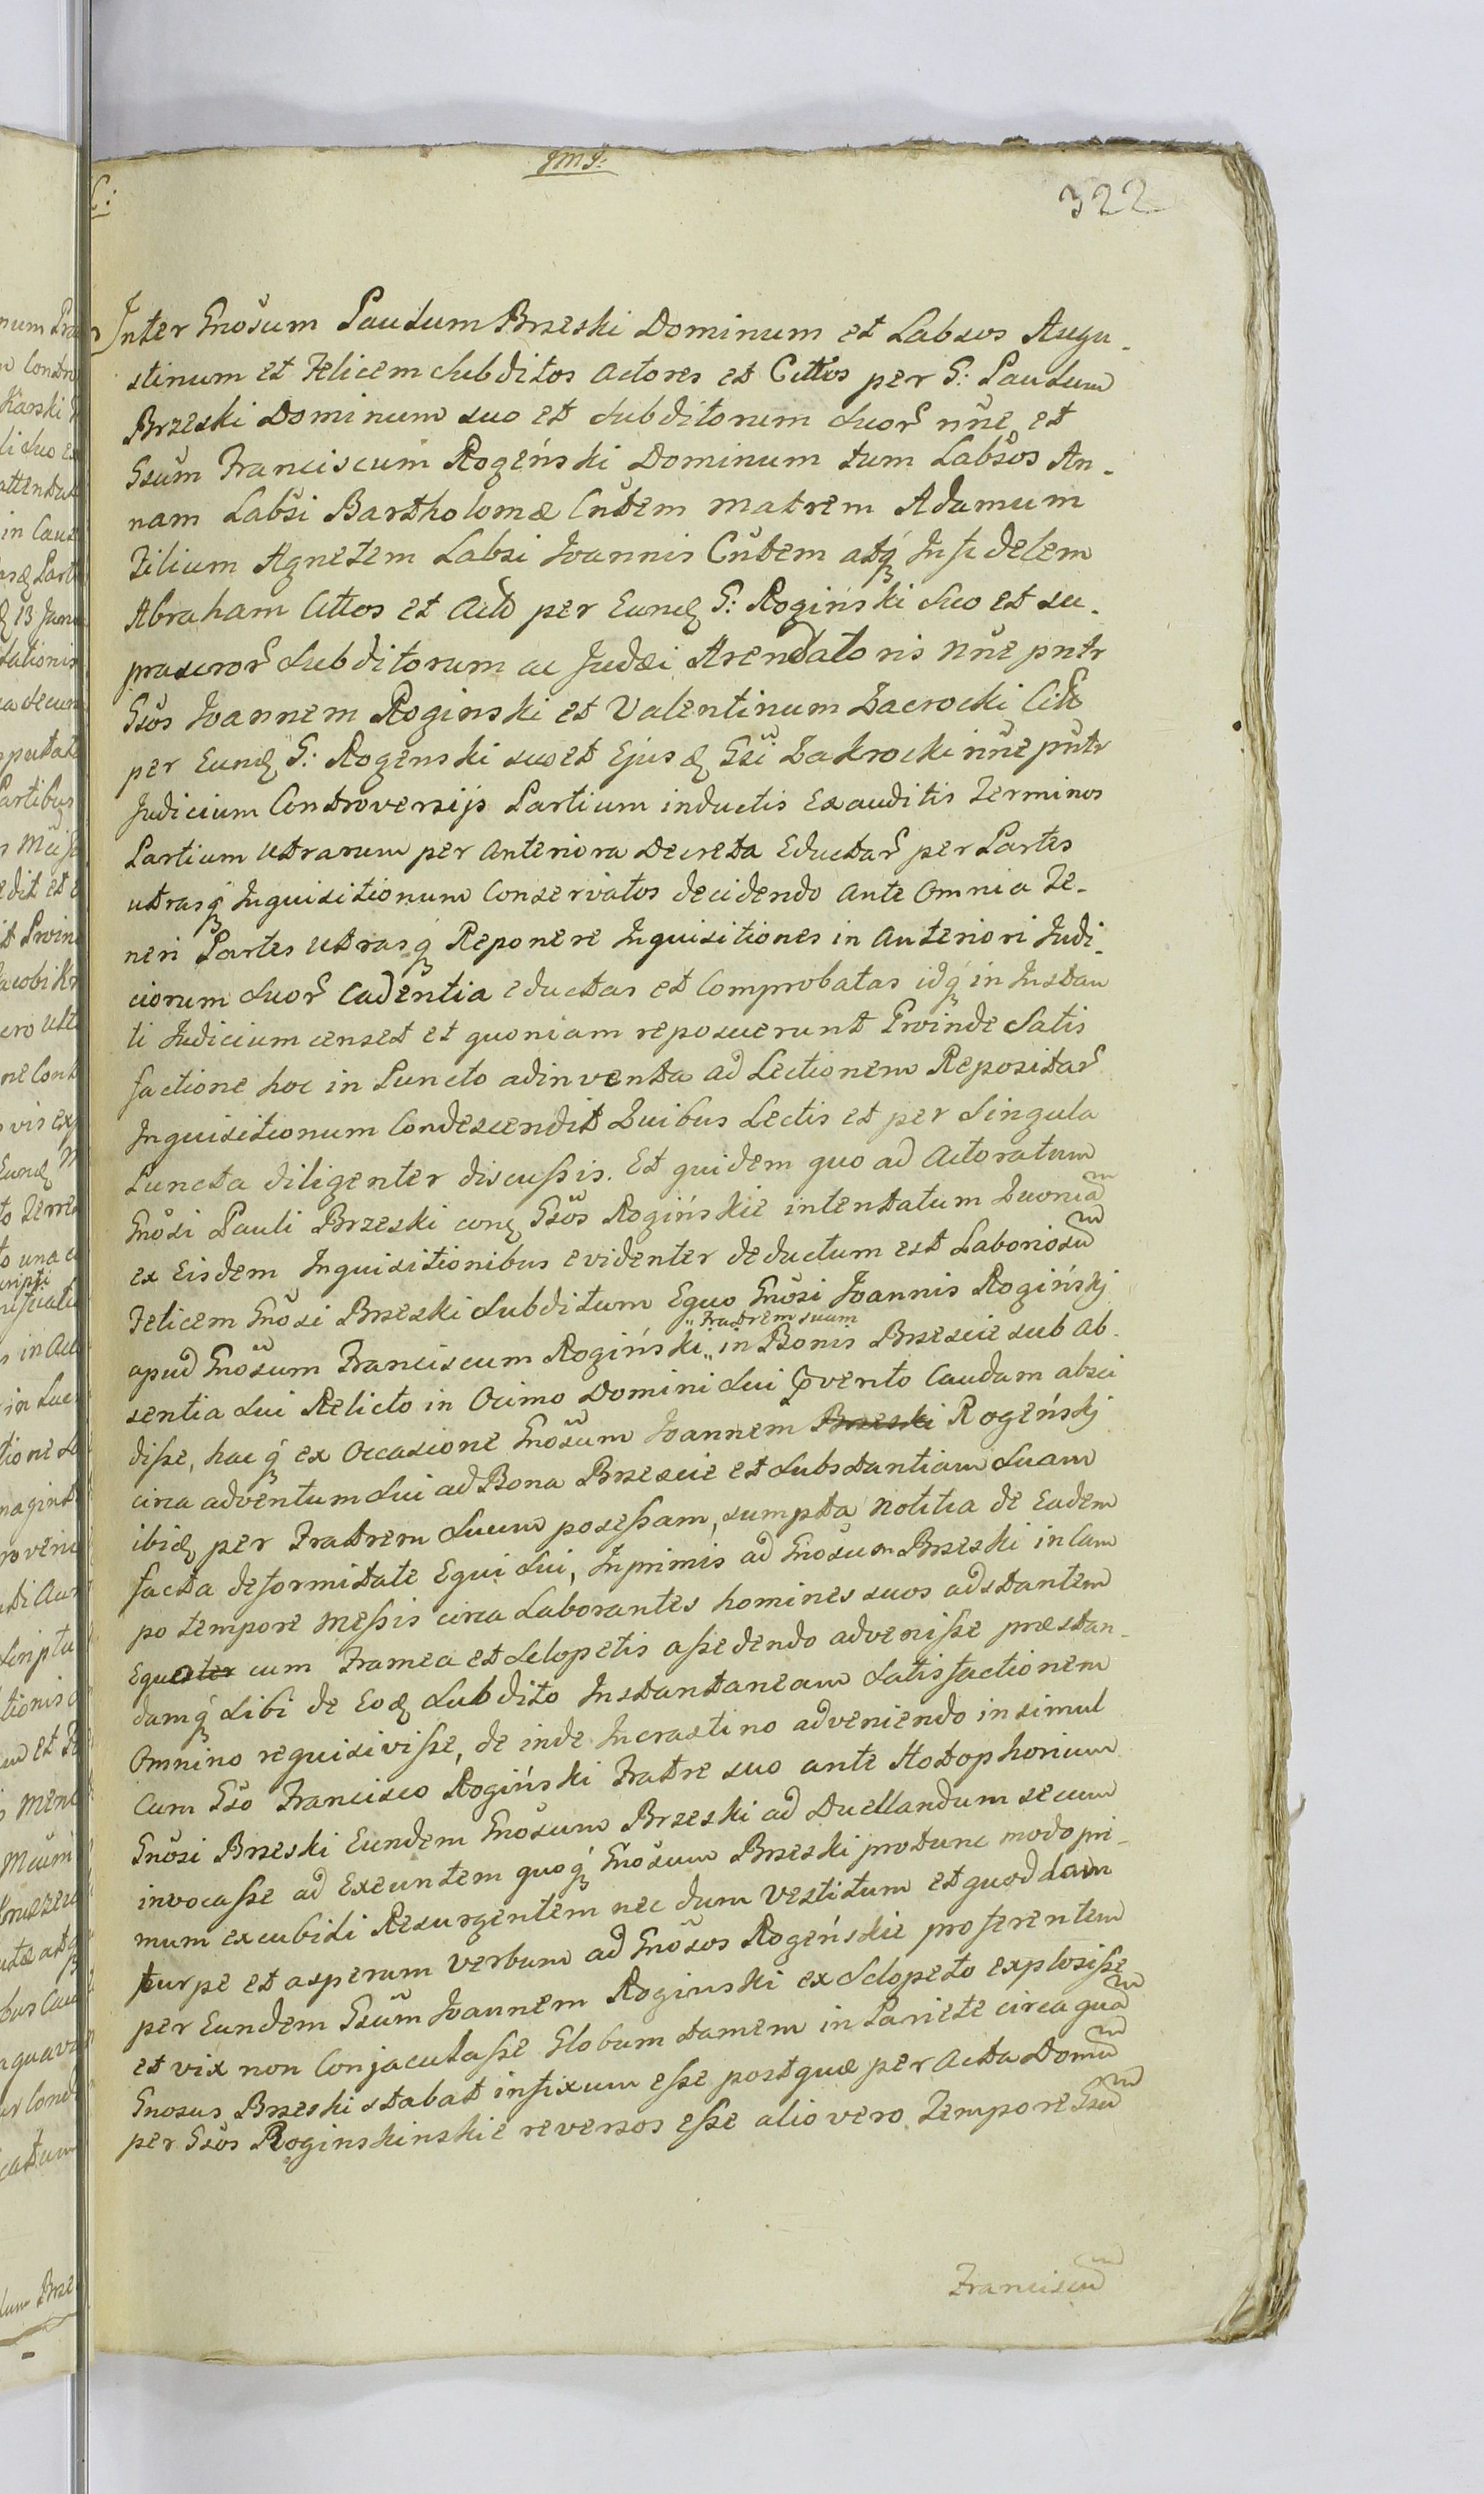 JMJ.
322
Inter Gnosum Paulum Brzeski Dominum et Labsos Augu-
stinum et Felicem Subditos Actores et Cittos per G: Paulum
Brzeski Dominum suo et Subditorum Suor nne et
Gsum Franciscum Rogenski Dominum tum Labsos An-
nam Labsi Bartholomæ Cndem matrem Adamum
Filium Agnetem Labsi Joannis Cndem atq Infidelem
Abraham Cittos et Acto per Eund G: Roginski Suo et su-
prascror Subditorum ac Judæi Arendatoris nne pntr
Gsos Joannem Roginski et Valentinum Zacrocki Citt
per Eund G: Rogenski suo et Ejusd Gsi Zakrocki nne pntr
Judicium Controversijs Partium inductis Exauditis Terminos
Partium Utrarum per Anteriora Decreta Eductar per Partes
utrasq Inquisitionum Conservatos decidendo Ante Omnia Te-
neri Partes Utrasq Reponere Inquisitiones in Anteriori Judi-
ciorum Suor Cadentia eductas et Comprobatas idq in Instan
ti Judicium censet et quoniam reposuerunt Proinde Satis
factione hoc in Puncto adinventa ad Lectionem Repositar
Inquisitionum Condescendit Quibus Lectis et per Singula
Puncta diligenter discussis. Et quidem quo ad Actoratum
Gnosi Pauli Brzeski cond Gsos Roginskie intentatum Quoniam
ex Eisdem Inquisitionibus evidenter deductum est Laboriosum
Felicem Gnosi Brzeski Subditum Equo Gnosi Joannis Roginskj
"Fratrem suum
apud Gnosum Franciscum Roginski" in Bonis Brzescie sub Ab-
sentia Sui Relicto in Ocimo Domini Sui Pvento Caudam absci
disse, hacq ex Occasione Gnosum Joannem Brzeski Rogenskj
circa adventum Sui ad Bona Brzescie et Substantiam Suam
ibid per Fratrem Suum possessam, sumpta Notitia de Eadem
facta deformitate Equi Sui, Inprimis ad Gnosum Brzeski in Cam
po tempore Messis circa Laborantes homines suos adstantem
Equester cum Framea et Sclopetis assedendo advenisse præstan-
damq Sibi de Eod Subdito Instantaneam Satisfactionem
Omnino requisivisse, de inde Incrastino adveniendo in simul
Cum Gso Francisco Roginski Fratre suo ante Hotophorium
Gnosi Brzeski Eundem Gnosum Brzeski ad Duellandum secum
invocasse ad Exeuntem quoq Gnosum Brzeski protunc modo pri-
mum excubidi Resurgentem nec dum Vestitum et quoddam
turpe et asperum Verbum ad Gnosos Rogenskie proferentem
per Eundem Gsum Joannem Roginski ex Sclopeto explosisse
et vix non Conjaculasse Globum tamem in Pariete circa quam
Gnosus Brzeski stabat infixum esse postquæ per Acta Domum
per Gsos Roginskinskie reversos esse alio vero Tempore Gsum
Franciscum